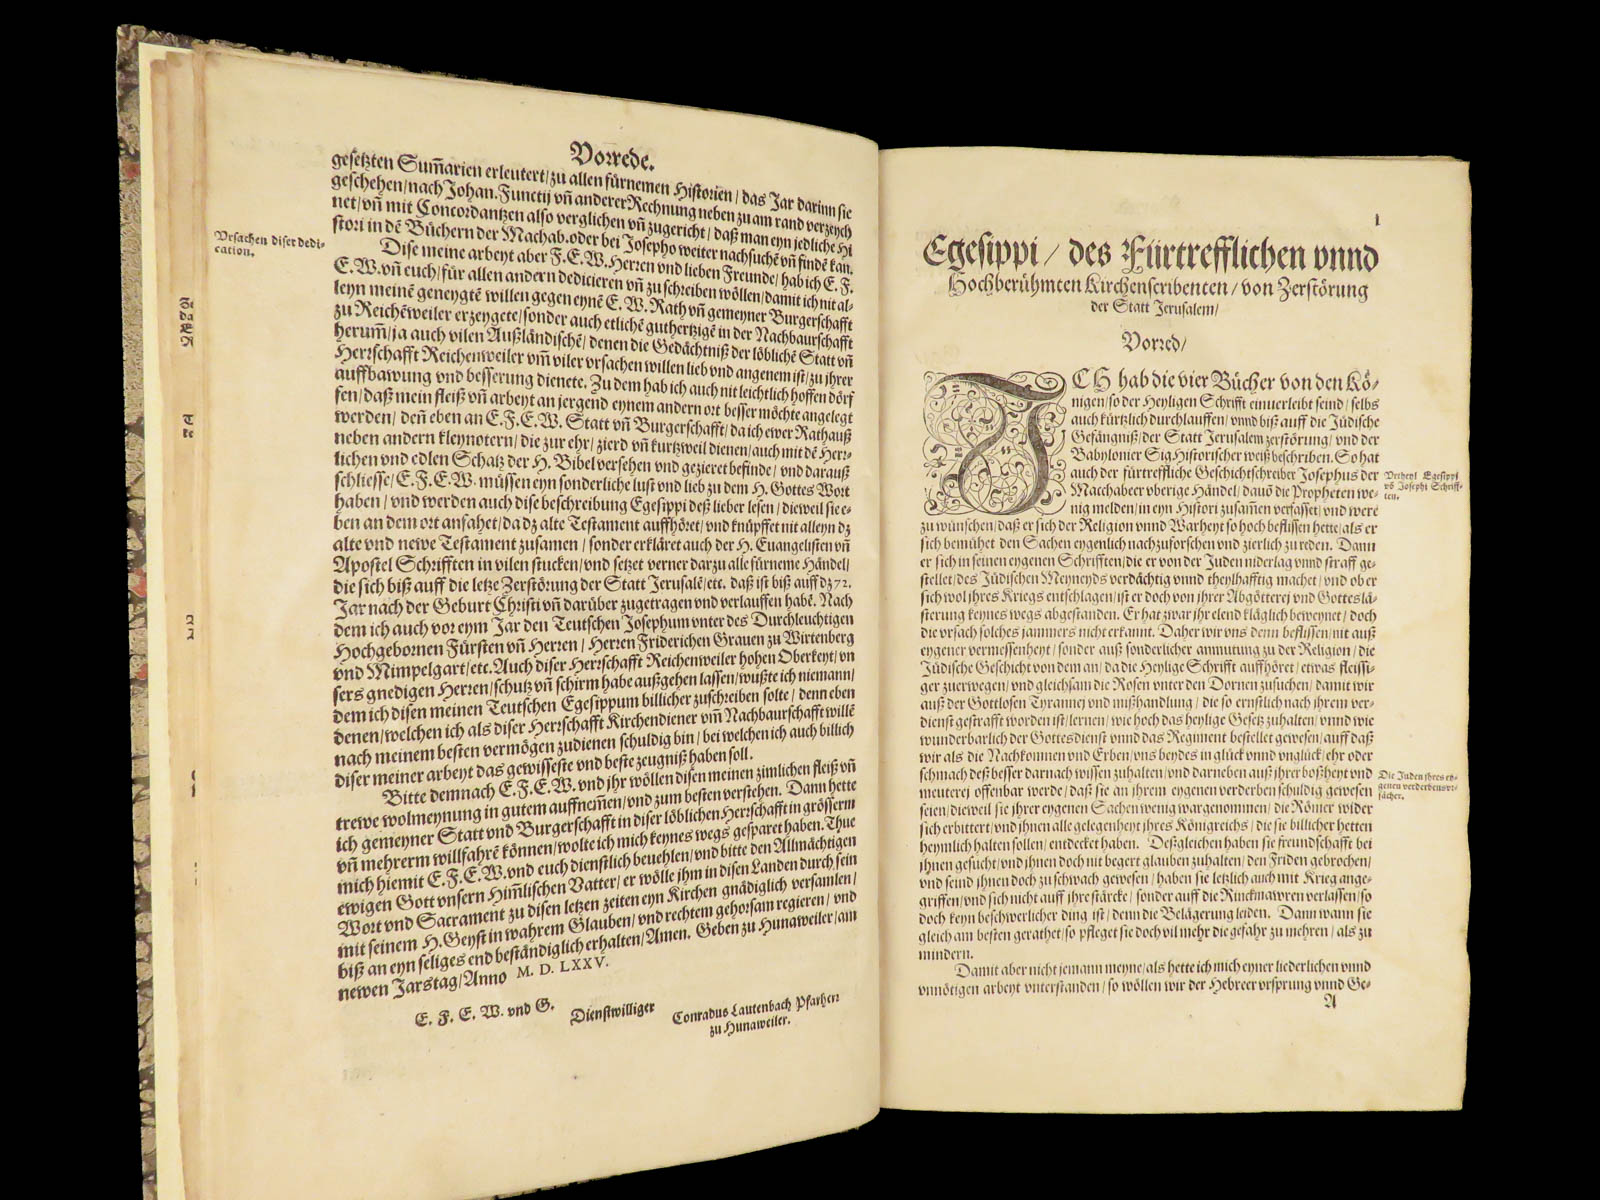 Vorrede.
gesetzten Sum̃arien erleutert/zu allen fürnemen Historien/das Jar darinn sie
geschehen/nach Johan. Functij vñ anderer Rechnung neben zu am rand verzeych
net/vñ mit Concordantzen also verglichen vñ zugericht/daß man eyn jedliche Hi
stori in dē Büchern der Machab. oder bei Josepho weiter nachsuchē vñ findē kan.
Vrsachen diser dedi-
cation.
Dise meine arbeyt aber F. E. W. Herren vnd lieben Freunde/hab ich E. F.
E. W. vñ euch/für allen andern dedicieren vñ zu schreiben wöllen/damit ich nit al-
leyn meinē geneygtē willen gegen eynē E. W. Rath vñ gemeyner Burgerschafft
zu Reichēweiler erzeygete/sonder auch etlichē guthertzigē in der Nachbaurschafft
herum̃/ja auch vilen Außländischē/denen die Gedächtniß der löblichē Statt vñ
Herrschafft Reichenweiler vm̃ viler vrsachen willen lieb vnd angenem ist/zu jhrer
auffbawung vnd besserung dienete. Zu dem hab ich auch nit leichtlich hoffen dörf
fen/daß mein fleiß vñ arbeyt an jergend eynem andern ort besser möchte angelegt
werden/deñ eben an E. F. E. W. Statt vñ Burgerschafft/da ich ewer Rathauß
neben andern kleynotern/die zur ehr/zierd vñ kurtzweil dienen/auch mit dē Herr-
lichen vnd edlen Schatz der H. Bibel versehen vnd gezieret befinde/vnd darauß
schliesse/E. F. E. W. müssen eyn sonderliche lust vnd lieb zu dem H. Gottes Wort
haben/vnd werden auch dise beschreibung Egesippi deß lieber lesen/dieweil sie e-
ben an dem ort anfahet/da dz alte Testament auffhöret/vnd knüpffet nit alleyn dz
alte vnd newe Testament zusamen/sonder erkläret auch der H. Euangelisten vñ
Apostel Schrifften in vilen stucken/vnd setzet verner darzu alle fürneme Händel/
die sich biß auff die letze Zerstörung der Statt Jerusalē/etc. daß ist biß auff dz 72.
Jar nach der Geburt Christi vñ darüber zugetragen vnd verlauffen habē. Nach
dem ich auch vor eym Jar den Teutschen Josephum vnter des Durchleuchtigen
Hochgebornen Fürsten vñ Herren/Herren Friderichen Grauen zu Wirtenberg
vnd Mimpelgart/etc. Auch diser Herrschafft Reichenweiler hohen Oberkeyt/vn
sers gnedigen Herren/schutz vñ schirm habe außgehen lassen/wußte ich niemann/
dem ich disen meinen Teutschen Egesippum billicher zuschreiben solte/denn eben
denen/welchen ich als diser Herrschafft Kirchendiener vm̃ Nachbaurschafft willē
nach meinem besten vermögen zudienen schuldig bin/bei welchen ich auch billich
diser meiner arbeyt das gewisseste vnd beste zeugniß haben soll.
Bitte demnach E. F. E. W. vnd jhr wöllen disen meinen zimlichen fleiß vñ
trewe wolmeynung in gutem auffnem̃en/vnd zum besten verstehen. Dann hette
ich gemeyner Statt vnd Burgerschafft in diser löblichen Herrschafft in grösserm
vñ mehrerm willfahrē können/wolte ich mich keynes wegs gesparet haben. Thue
mich hiemit E. F. E. W. vnd euch dienstlich beuehlen/vnd bitte den Allmächtigen
ewigen Gott vnsern Him̃lischen Vatter/er wölle jhm in disen Landen durch sein
Wort vnd Sacrament zu disen letzen zeiten eyn Kirchen gnädiglich versamlen/
mit seinem H. Geyst in wahrem Glauben/vnd rechtem gehorsam regieren/vnd
biß an eyn seliges end beständiglich erhalten/Amen. Geben zu Hunaweiler/am
newen Jarstag/Anno M. D. LXXV.
E. F. E. W. vnd G.
Dienstwilliger
Conradus Lautenbach Pfarherr
zu Hunaweiler.
1
Egesippi/des Fürtrefflichen vnnd
Hochberühmten Kirchenscribenten/von Zerstörung
der Statt Jerusalem/
Vorred/
ICH hab die vier Bücher von den Kö-
nigen/so der Heyligen Schrifft einuerleibt seind/selbs
auch kürtzlich durchlauffen/vnnd biß auff die Jüdische
Gefängniß/der Statt Jerusalem zerstörung/vnd der
Babylonier Sig Historischer weiß beschriben. So hat
auch der fürtreffliche Geschichtschreiber Josephus der
Machabeer vberige Händel/dauō die Propheten we-
nig melden/in eyn Histori zusam̃en verfasset/vnd were
Vrtheyl Egesippi
vō Josephi Schriff-
ten.
zu wünschen/daß er sich der Religion vnnd Warheyt so hoch beflissen hette/als er
sich bemühet den Sachen eygenlich nachzuforschen vnd zierlich zu reden. Dann
er sich in seinen eygenen Schrifften/die er von der Juden niderlag vnnd straff ge-
stellet/des Jüdischen Meyneyds verdächtig vnnd theylhafftig machet/vnd ob er
sich wol jhres Kriegs entschlagen/ist er doch von jhrer Abgötterei vnd Gotteslä-
sterung keynes wegs abgestanden. Er hat zwar jhr elend kläglich beweynet/doch
die vrsach solches jammers nicht erkannt. Daher wir vns denn beflissen/nit auß
eygener vermessenheyt/sonder auß sonderlicher anmutung zu der Religion/die
Jüdische Geschicht von dem an/da die Heylige Schrifft auffhöret/etwas fleissi-
ger zuerwegen/vnd gleichsam die Rosen vnter den Dornen zusuchen/damit wir
auß der Gottlosen Tyrannei vnd mißhandlung/die so ernstlich nach jhrem ver-
dienst gestrafft worden ist/lernen/wie hoch das heylige Gesetz zuhalten/vnnd wie
wunderbarlich der Gottesdienst vnnd das Regiment bestellet gewesen/auff daß
wir als die Nachkom̃en vnd Erben/vns beydes in glück vnnd vnglück/ehr oder
schmach deß besser darnach wissen zuhalten/vnd darneben auß jhrer boßheyt vnd
meuterei offenbar werde/daß sie an jhrem eygenen verderben schuldig gewesen
Die Juden jhres ey-
genen verderbens vr-
sächer.
seien/dieweil sie jhrer eygenen Sachen wenig wargenommen/die Römer wider
sich erbittert/vnd jhnen alle gelegenheyt jhres Königreichs/die sie billicher hetten
heymlich halten sollen/entdecket haben. Deßgleichen haben sie freundschafft bei
jhnen gesucht/vnd jhnen doch nit begert glauben zuhalten/den Friden gebrochen/
vnd seind jhnen doch zu schwach gewesen/haben sie letzlich auch mit Krieg ange-
griffen/vnd sich nicht auff jhre stärcke/sonder auff die Rinckmawren verlassen/so
doch keyn beschwerlicher ding ist/denn die Belägerung leiden. Dann wann sie
gleich am besten gerathet/so pfleget sie doch vil mehr die gefahr zu mehren/als zu
mindern.
Damit aber nicht jemann meyne/als hette ich mich eyner liederlichen vnnd
vnnötigen arbeyt vnterstanden/so wöllen wir der Hebreer vrsprung vnnd Ge-
A